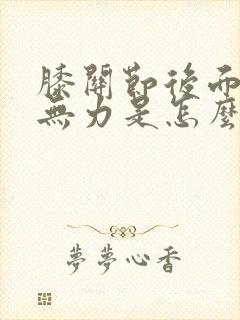 膝關節後面
無力是怎麼
夢夢心香